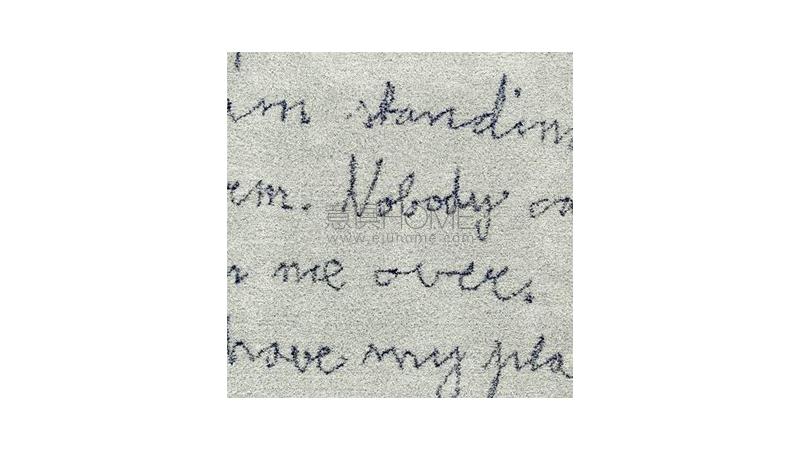 m standin
em. Nobody ca
意真HOME
www.ejuhome.com
n me over.
have my pla